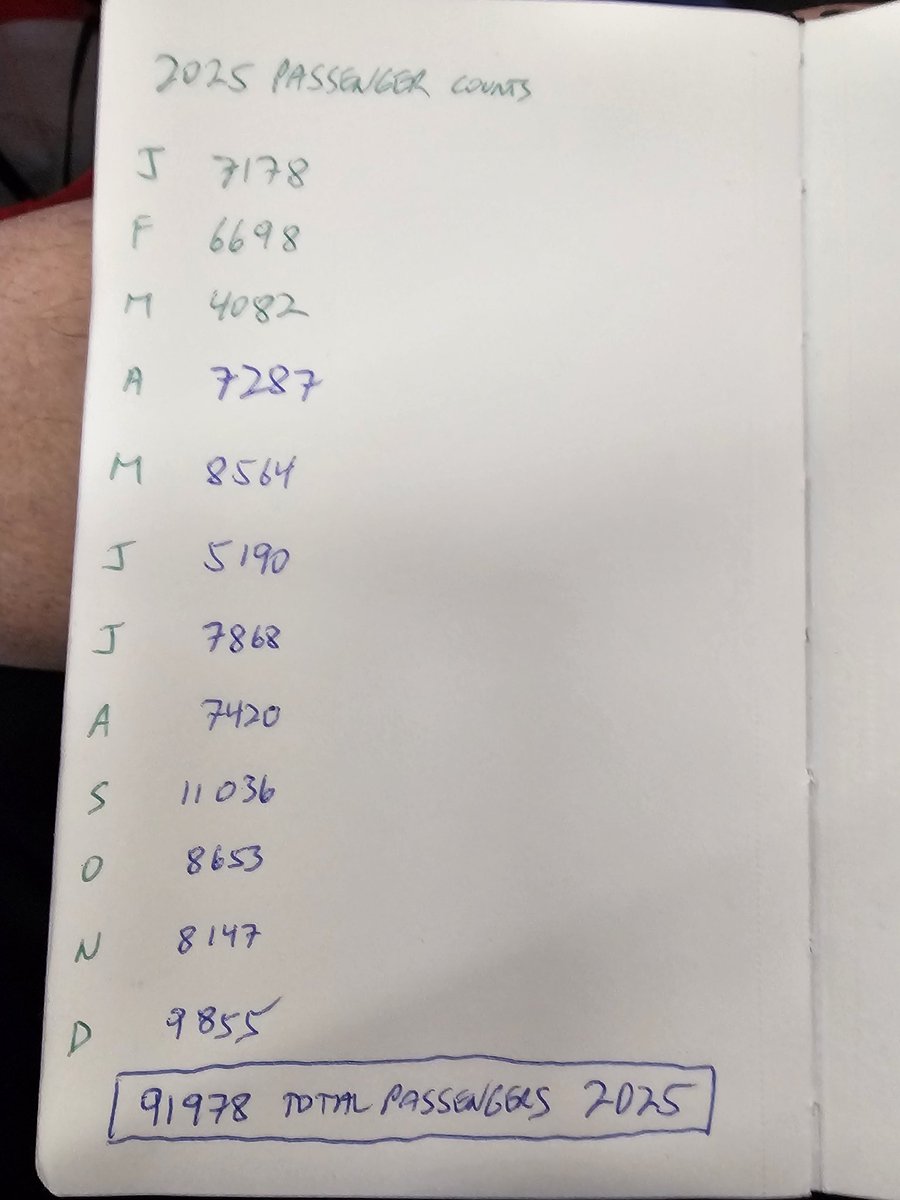 2025 PASSENGER COUNTS
J 7178
F 6698
M 4082
A 7287
M 8564
J 5190
J 7868
A 7420
S 11036
O 8653
N 8147
D 9855
91978 TOTAL PASSENGERS 2025